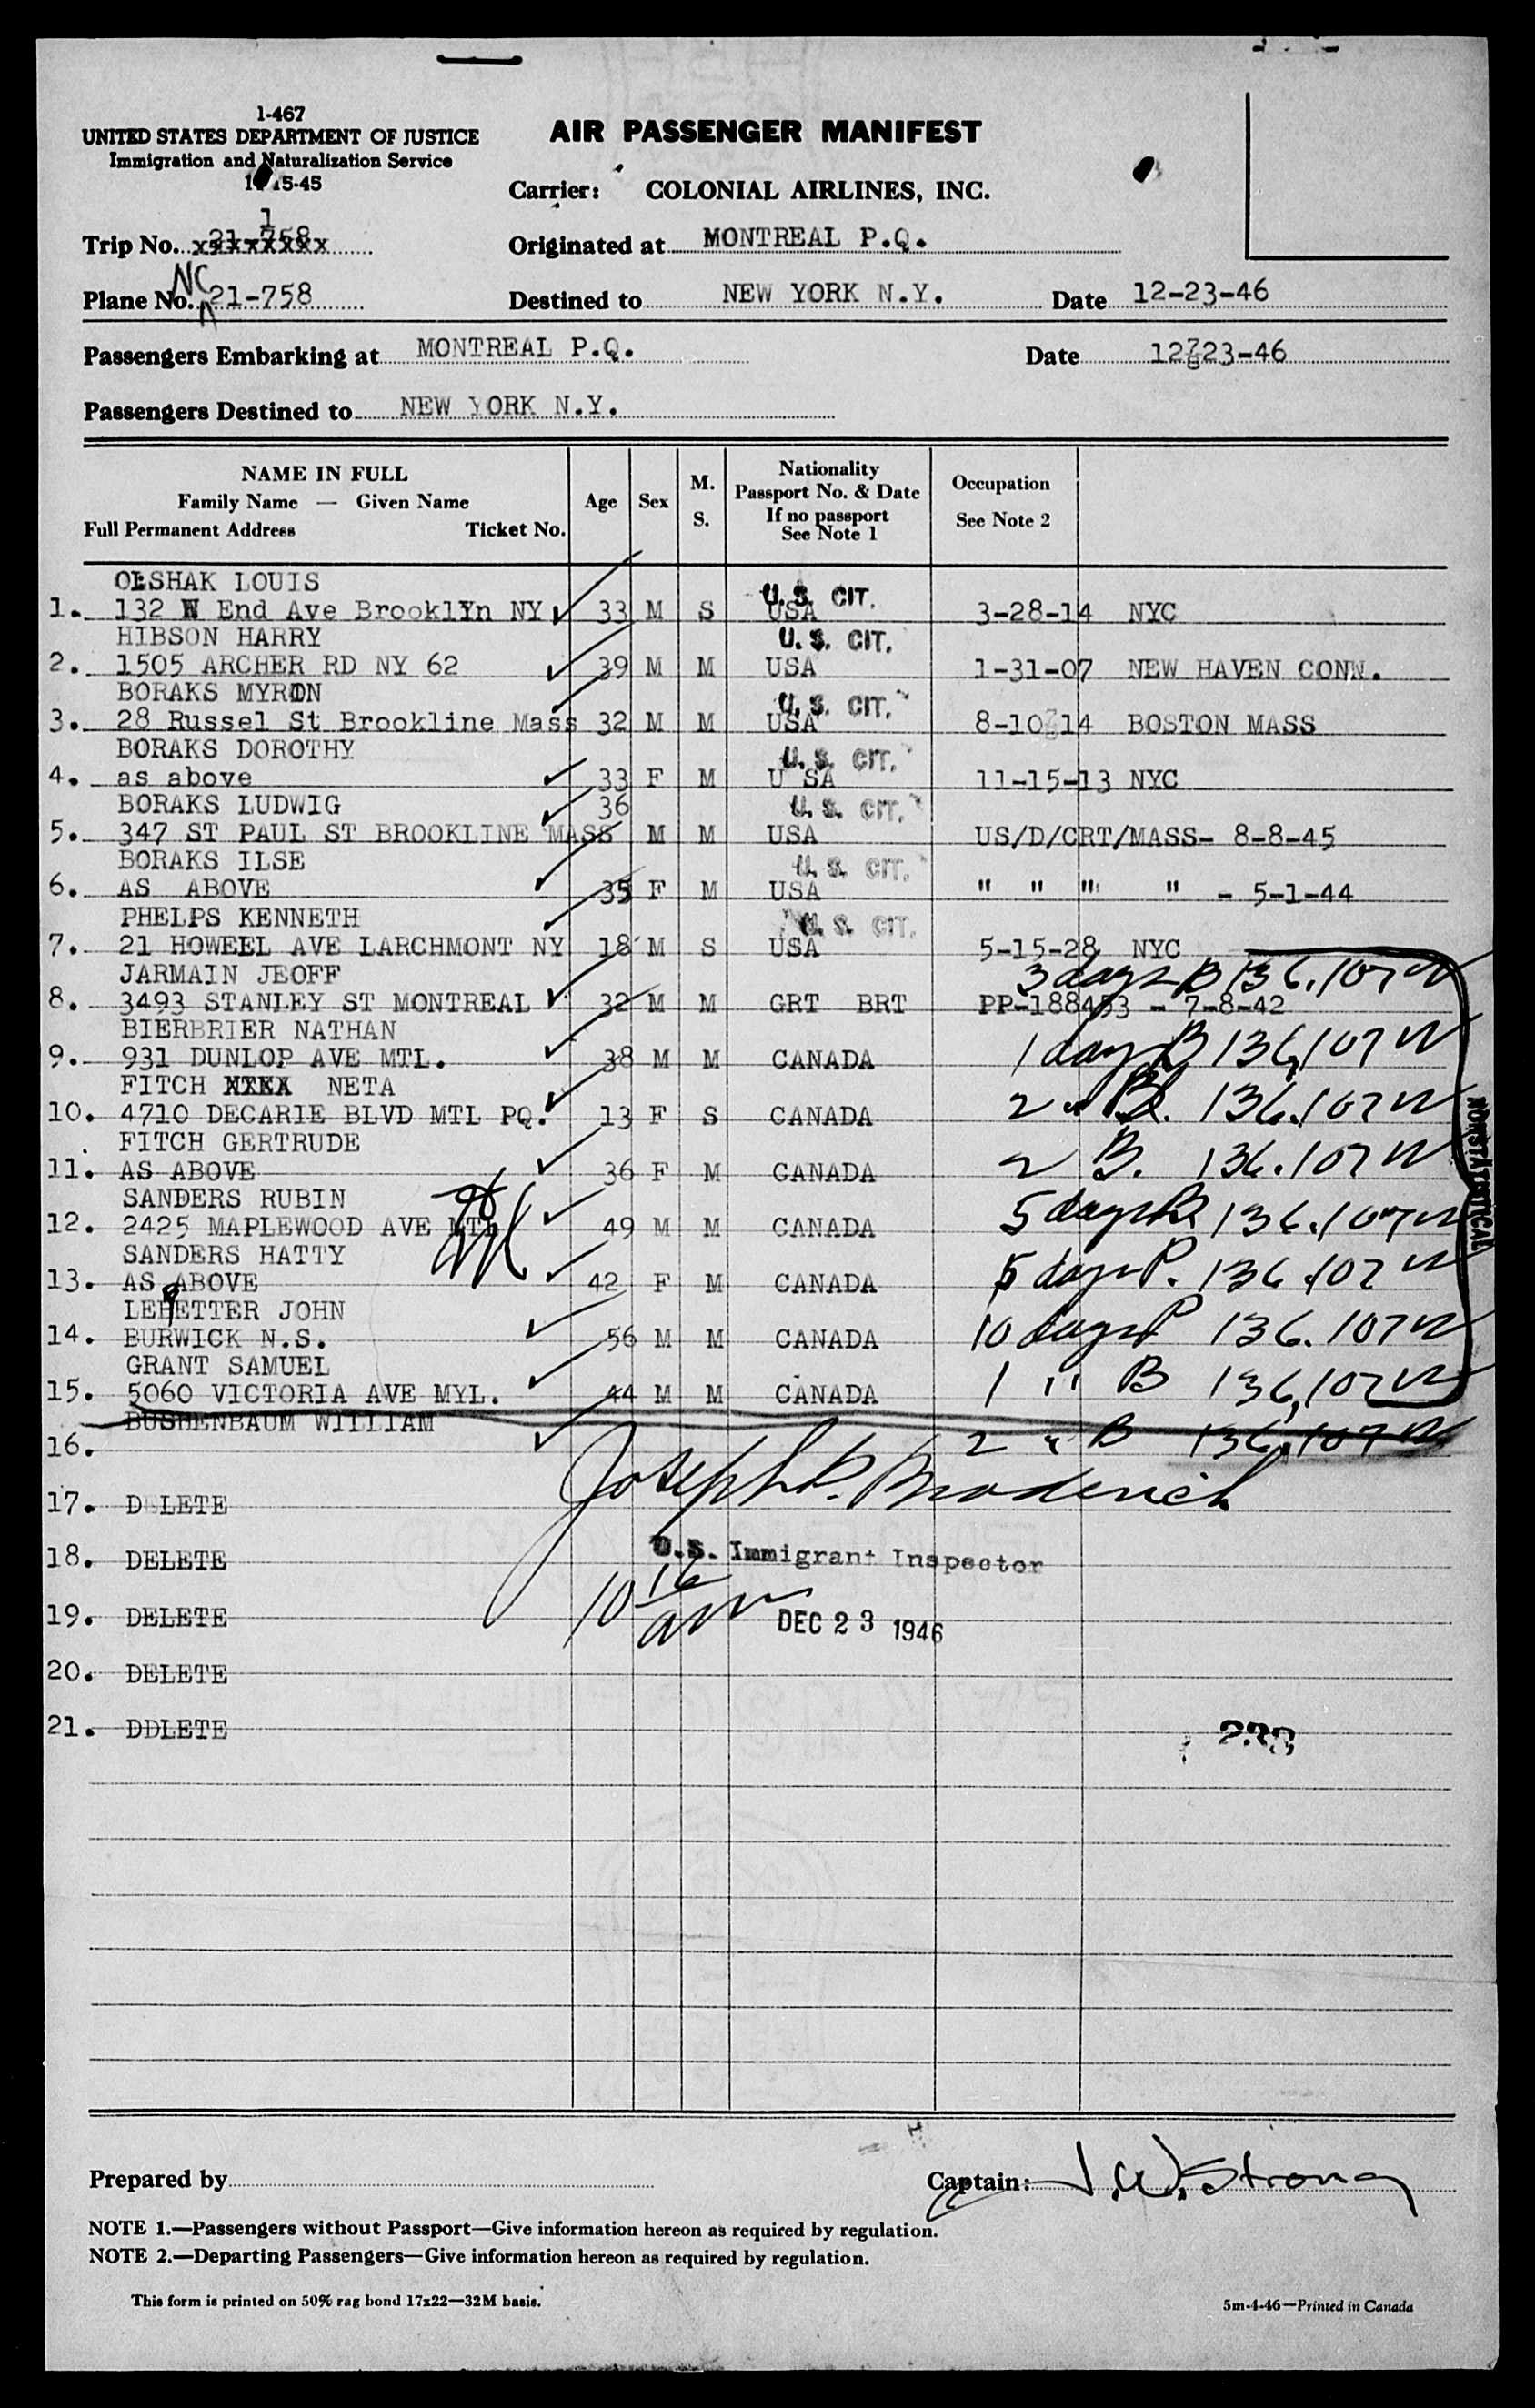 1-467
UNITED STATES DEPARTMENT OF JUSTICE
Immigration and Naturalization Service
15-45
AIR PASSENGER MANIFEST
Carrier: COLONIAL AIRLINES, INC.
Trip No. 1
Originated at MONTREAL P.Q.
Plane No. NC 21-758
Destined to NEW YORK N.Y. Date 12-23-46
Passengers Embarking at MONTREAL P.Q. Date 12-23-46
Passengers Destined to NEW YORK N.Y.
NAME IN FULL
Family Name — Given Name
Full Permanent Address Ticket No.
Age
Sex
M.
S.
Nationality
Passport No. & Date
If no passport
See Note 1
Occupation
See Note 2
OLSHAK LOUIS U.S. CIT.
1. 132 W End Ave Brooklyn NY 33 M S USA 3-28-14 NYC
HIBSON HARRY U. S. CIT.
2. 1505 ARCHER RD NY 62 39 M M USA 1-31-07 NEW HAVEN CONN.
BORAKS MYRON U. S. CIT.
3. 28 Russel St Brookline Mass 32 M M USA 8-10-14 BOSTON MASS
BORAKS DOROTHY U. S. CIT.
4. as above 33 F M U SA 11-15-13 NYC
BORAKS LUDWIG 36 U. S. CIT.
5. 347 ST PAUL ST BROOKLINE MASS M M USA US/D/CRT/MASS- 8-8-45
BORAKS ILSE U. S. CIT.
6. AS ABOVE 35 F M USA " " " " - 5-1-44
PHELPS KENNETH U. S. CIT.
7. 21 HOWEEL AVE LARCHMONT NY 18 M S USA 5-15-28 NYC
JARMAIN JEOFF 3 days B 136.107
8. 3493 STANLEY ST MONTREAL 32 M M GRT BRT PP-188453 - 7-8-42
BIERBRIER NATHAN
9. 931 DUNLOP AVE MTL. 38 M M CANADA 1 day B 136,107
FITCH NETA
10. 4710 DECARIE BLVD MTL PQ. 13 F S CANADA 2 " 136.107
FITCH GERTRUDE
11. AS ABOVE 36 F M CANADA 2 B. 136.107
SANDERS RUBIN
12. 2425 MAPLEWOOD AVE MTL 49 M M CANADA 5 days 136.107
SANDERS HATTY
13. AS ABOVE 42 F M CANADA 5 days P. 136.107
LEHETTER JOHN
14. BURWICK N.S. 56 M M CANADA 10 days P 136.107
GRANT SAMUEL
15. 5060 VICTORIA AVE MYL. 44 M M CANADA 1 " B 136,107
NONSTATISTICAL
BUSHENBAUM WILLIAM
16. 2 " B 136.107
Joseph P. Broderick
17. DELETE
18. DELETE U.S. Immigrant Inspector
10 16 am
19. DELETE DEC 23 1946
20. DELETE
21. DDLETE
Prepared by
Captain: J.W. Strong
NOTE 1.—Passengers without Passport—Give information hereon as required by regulation.
NOTE 2.—Departing Passengers—Give information hereon as required by regulation.
This form is printed on 50% rag bond 17x22—32M basis.
5m-4-46—Printed in Canada